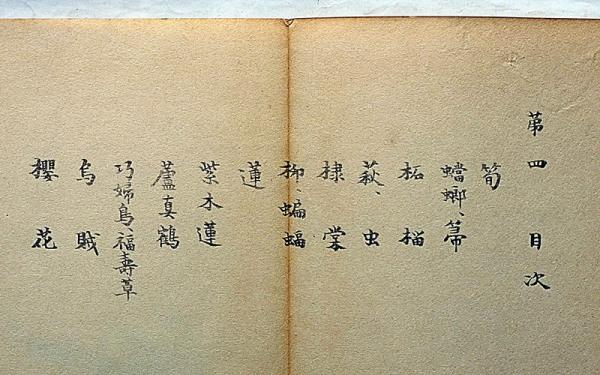 第四 目次
筍
蟷螂、箒
柘榴
萩、虫
棣棠
柳、蝙蝠
蓮
紫木蓮
蘆真鶴
巧婦鳥、福壽草
烏賊
櫻花